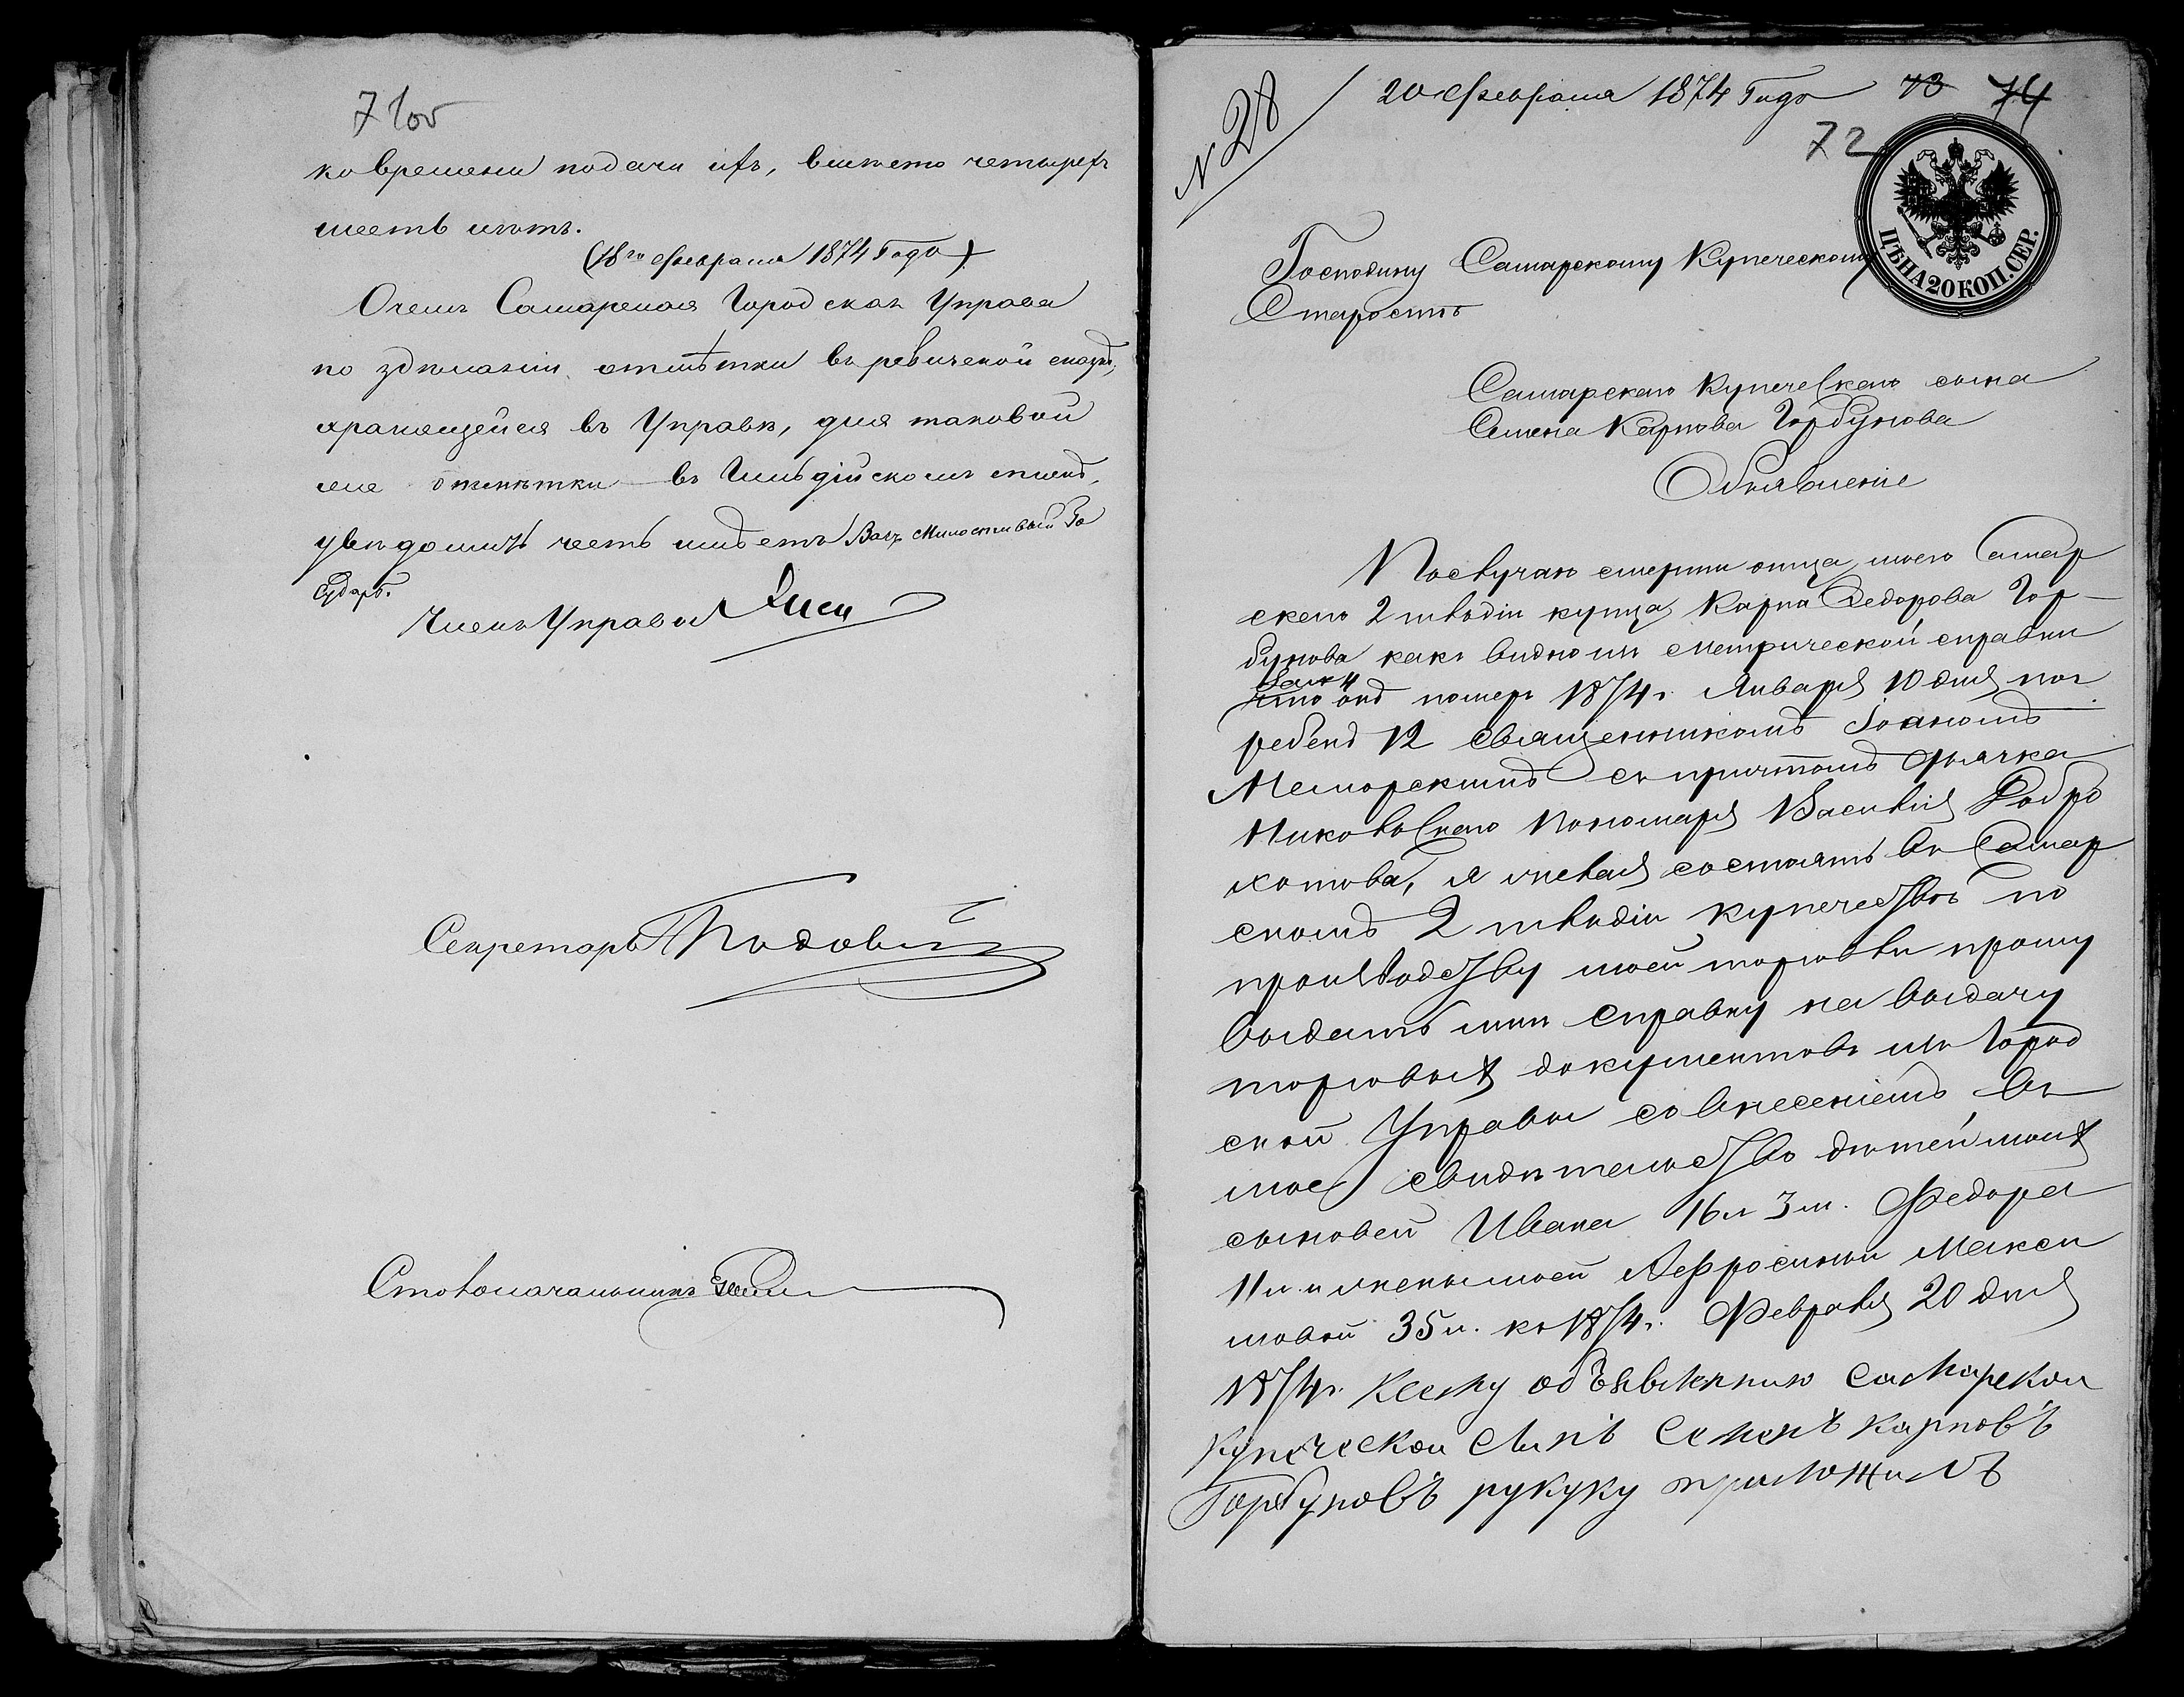 71об
ко времени подачи ихъ, вместо четырехъ
шесть летъ.
(18го Февраля 1874 Года)
О чемъ Самарская Городская Управа
по зделаніи отмѣтки въ ревизской сказкѣ,
хранящейся въ Управѣ, для таковой
же отмѣтки въ Гильдійскомъ спискѣ,
увѣдомить честь имѣетъ Васъ Милостивый Го
сударь.
Членъ Управы
Секретарь
Столоначальникъ
N 28
20 Февраля 1874 Года 73 74
72
ЦѢНА 20 КОП. СЕР.
Господину Самарскому Купеческому
Старостѣ
Самарскаго Купеческаго сына
Семена Карпова Горбунова
Объявленіе
По случаю смерти отца моего Самар
скаго 2 гильдіи купца Карпа Федорова Гор-
бунова какъ видно изъ метрической справки
что онъ померъ 1874 г. Января 10 дня пог
ребенъ 12 священникомъ Іоаномъ
съ причтомъ дьячка
Никольскаго Пономаря Василія Добро
хотова, я желая состоять въ Самар
скомъ 2 гильдіи купечествѣ по
производству моей торговли прошу
выдать мнѣ справку на выдачу
торговыхъ документовъ изъ Город
ской Управы со внесеніемъ въ
мое свидѣтельство дѣтей моихъ
сыновей Ивана 16 л 3 м. Федора
11 л. и жены моей Афросиньи Макси
мовой 35 л. къ 1874 г. Февраля 20 дня
1874 г. К сему объевленнию самарской
купеческой сынъ Семенъ Карповъ
Горбуновъ рукуку приложилъ